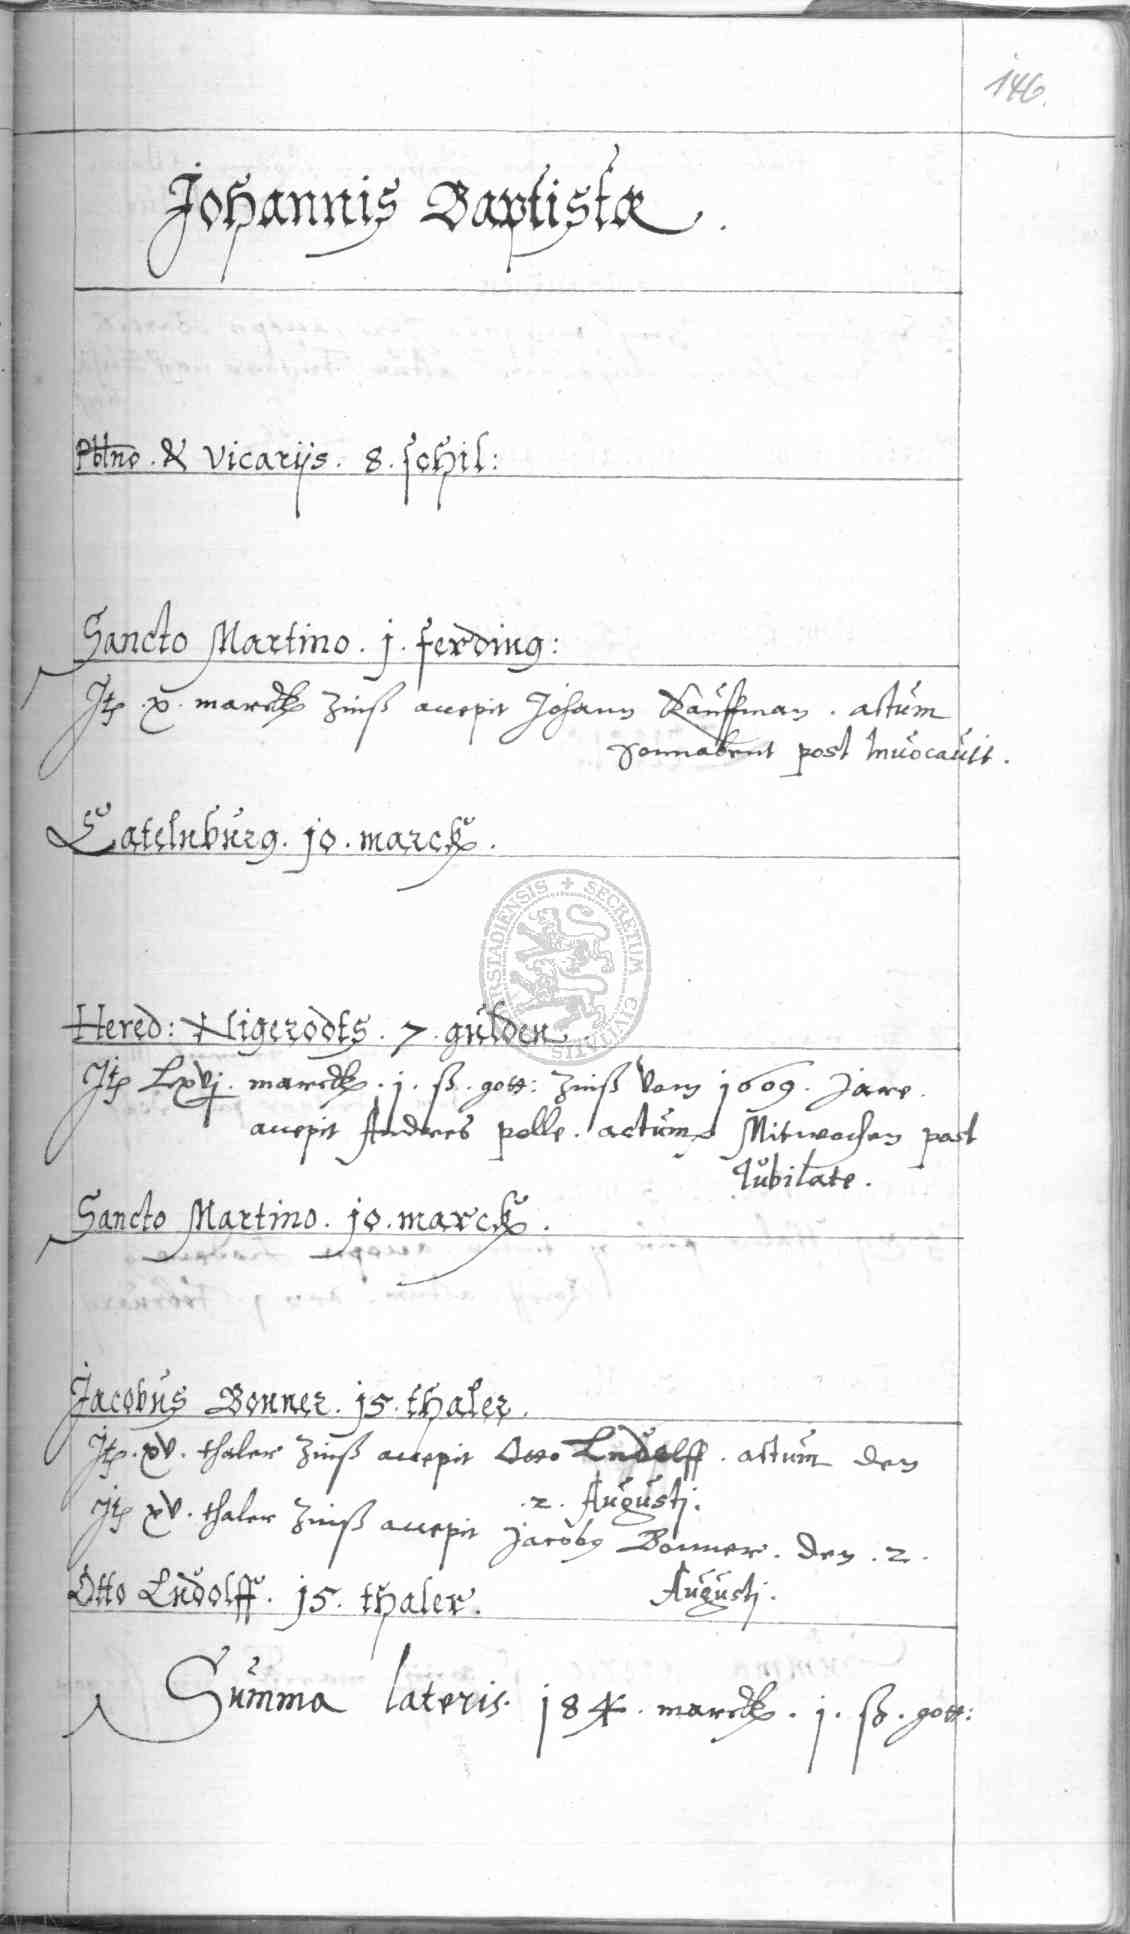 146.
Johannis Baptistæ.
Pbtno. & Vicarijs. 8. schil:
Sancto Martino. j. ferding:
Jtp. x. marck Zinß accepit Johann Kauffman. actum
Sonnabent post Inuocauit.
Catelnburg. 10. marck.
Hered: Nigerodts. 7. gulden.
Jtp Lxvj. marck. j. ß. gott: Zinß vom 1609. Jare.
accepit Andres polle. actum Mitwochen post
Jubilate.
Sancto Martino. 10. marck.
Jacobus Bonner. 15. thaler.
Jtp. xv. thaler Zinß accepit Otto Ludolff. actum den
2. Augustj.
Jtp xv. thaler Zinß accepit Jacobg Bonner. den. 2.
Augustj.
Otto Ludolff. 15. thaler.
Summa lateris. 184. marck. j. ß. gott:
SECRETUM CIVITATIS